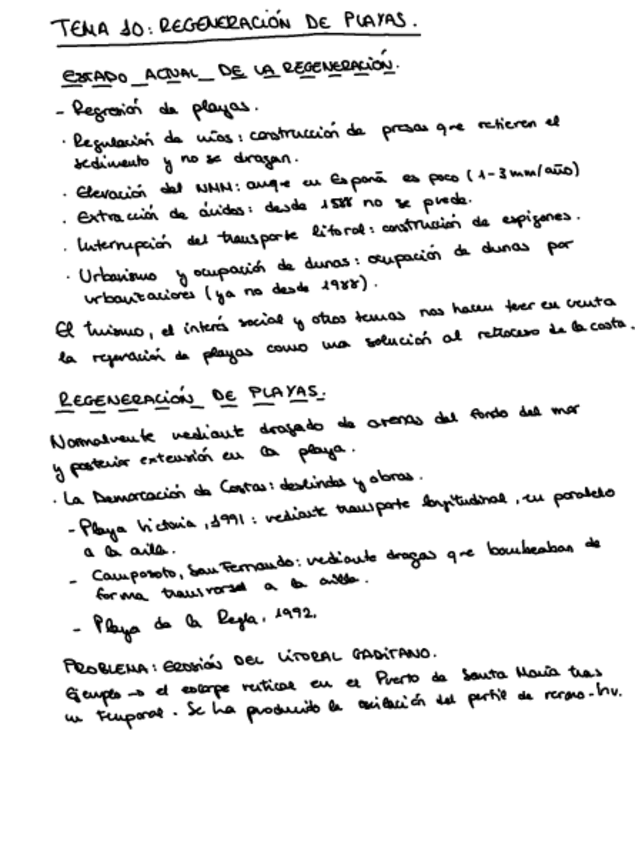 TEMA 10: REGENERACIÓN DE PLAYAS.
ESTADO ACTUAL DE LA REGENERACIÓN.
- Regresión de playas.
· Regulación de ríos: construcción de presas que retienen el
sedimento y no se dragan.
· Elevación del NMM: aunque en España es poco (1-3 mm/año)
· Extracción de áridos: desde 1988 no se puede.
· Interrupción del transporte litoral: construcción de espigones.
· Urbanismo y ocupación de dunas: ocupación de dunas por
urbanizaciones (ya no desde 1988).
El turismo, el interés social y otros temas nos hacen tener en cuenta
la regeneración de playas como una solución al retroceso de la costa.
REGENERACIÓN DE PLAYAS.
Normalmente mediante dragado de arenas del fondo del mar
y posterior extensión en la playa.
· La Demarcación de Costas: deslindes y obras.
- Playa Victoria, 1991: mediante transporte longitudinal, en paralelo
a la orilla.
- Camposoto, San Fernando: mediante dragas que bombeaban de
forma transversal a la orilla.
- Playa de la Regla, 1992.
PROBLEMA: EROSIÓN DEL LITORAL GADITANO.
Ejemplo → el escarpe vertical en el Puerto de Santa María tras
un temporal. Se ha producido la oscilación del perfil de verano-Inv.